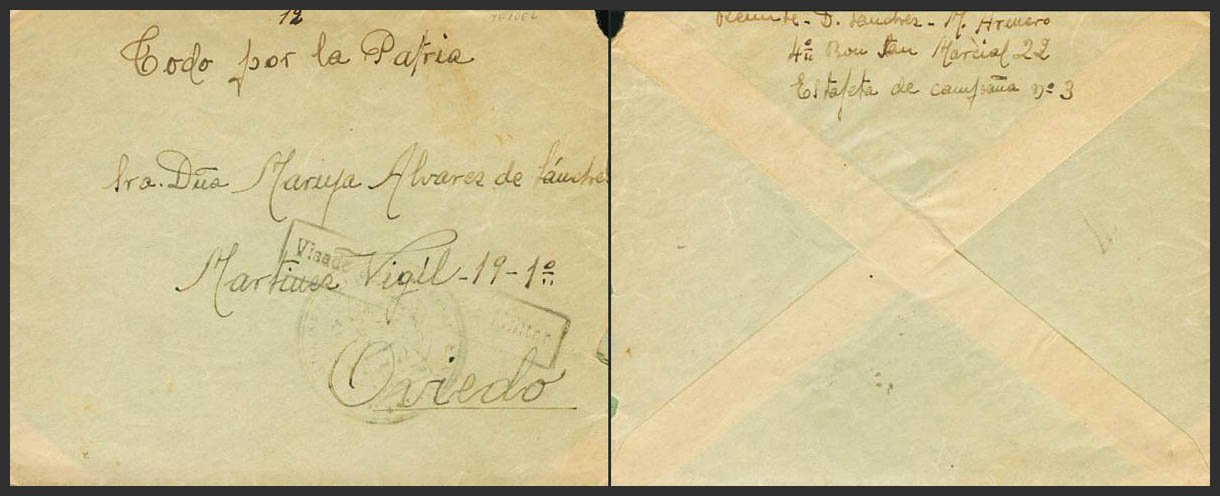 12
Todo por la Patria
Sra. Dña Maruja Alvarez de Sánchez
Visado
Martinez Vigil - 19 - 1º
Militar
Oviedo
Remite - D. Sanchez - M. Armero
4º Bon San Marcial 22
Estafeta de campaña nº 3